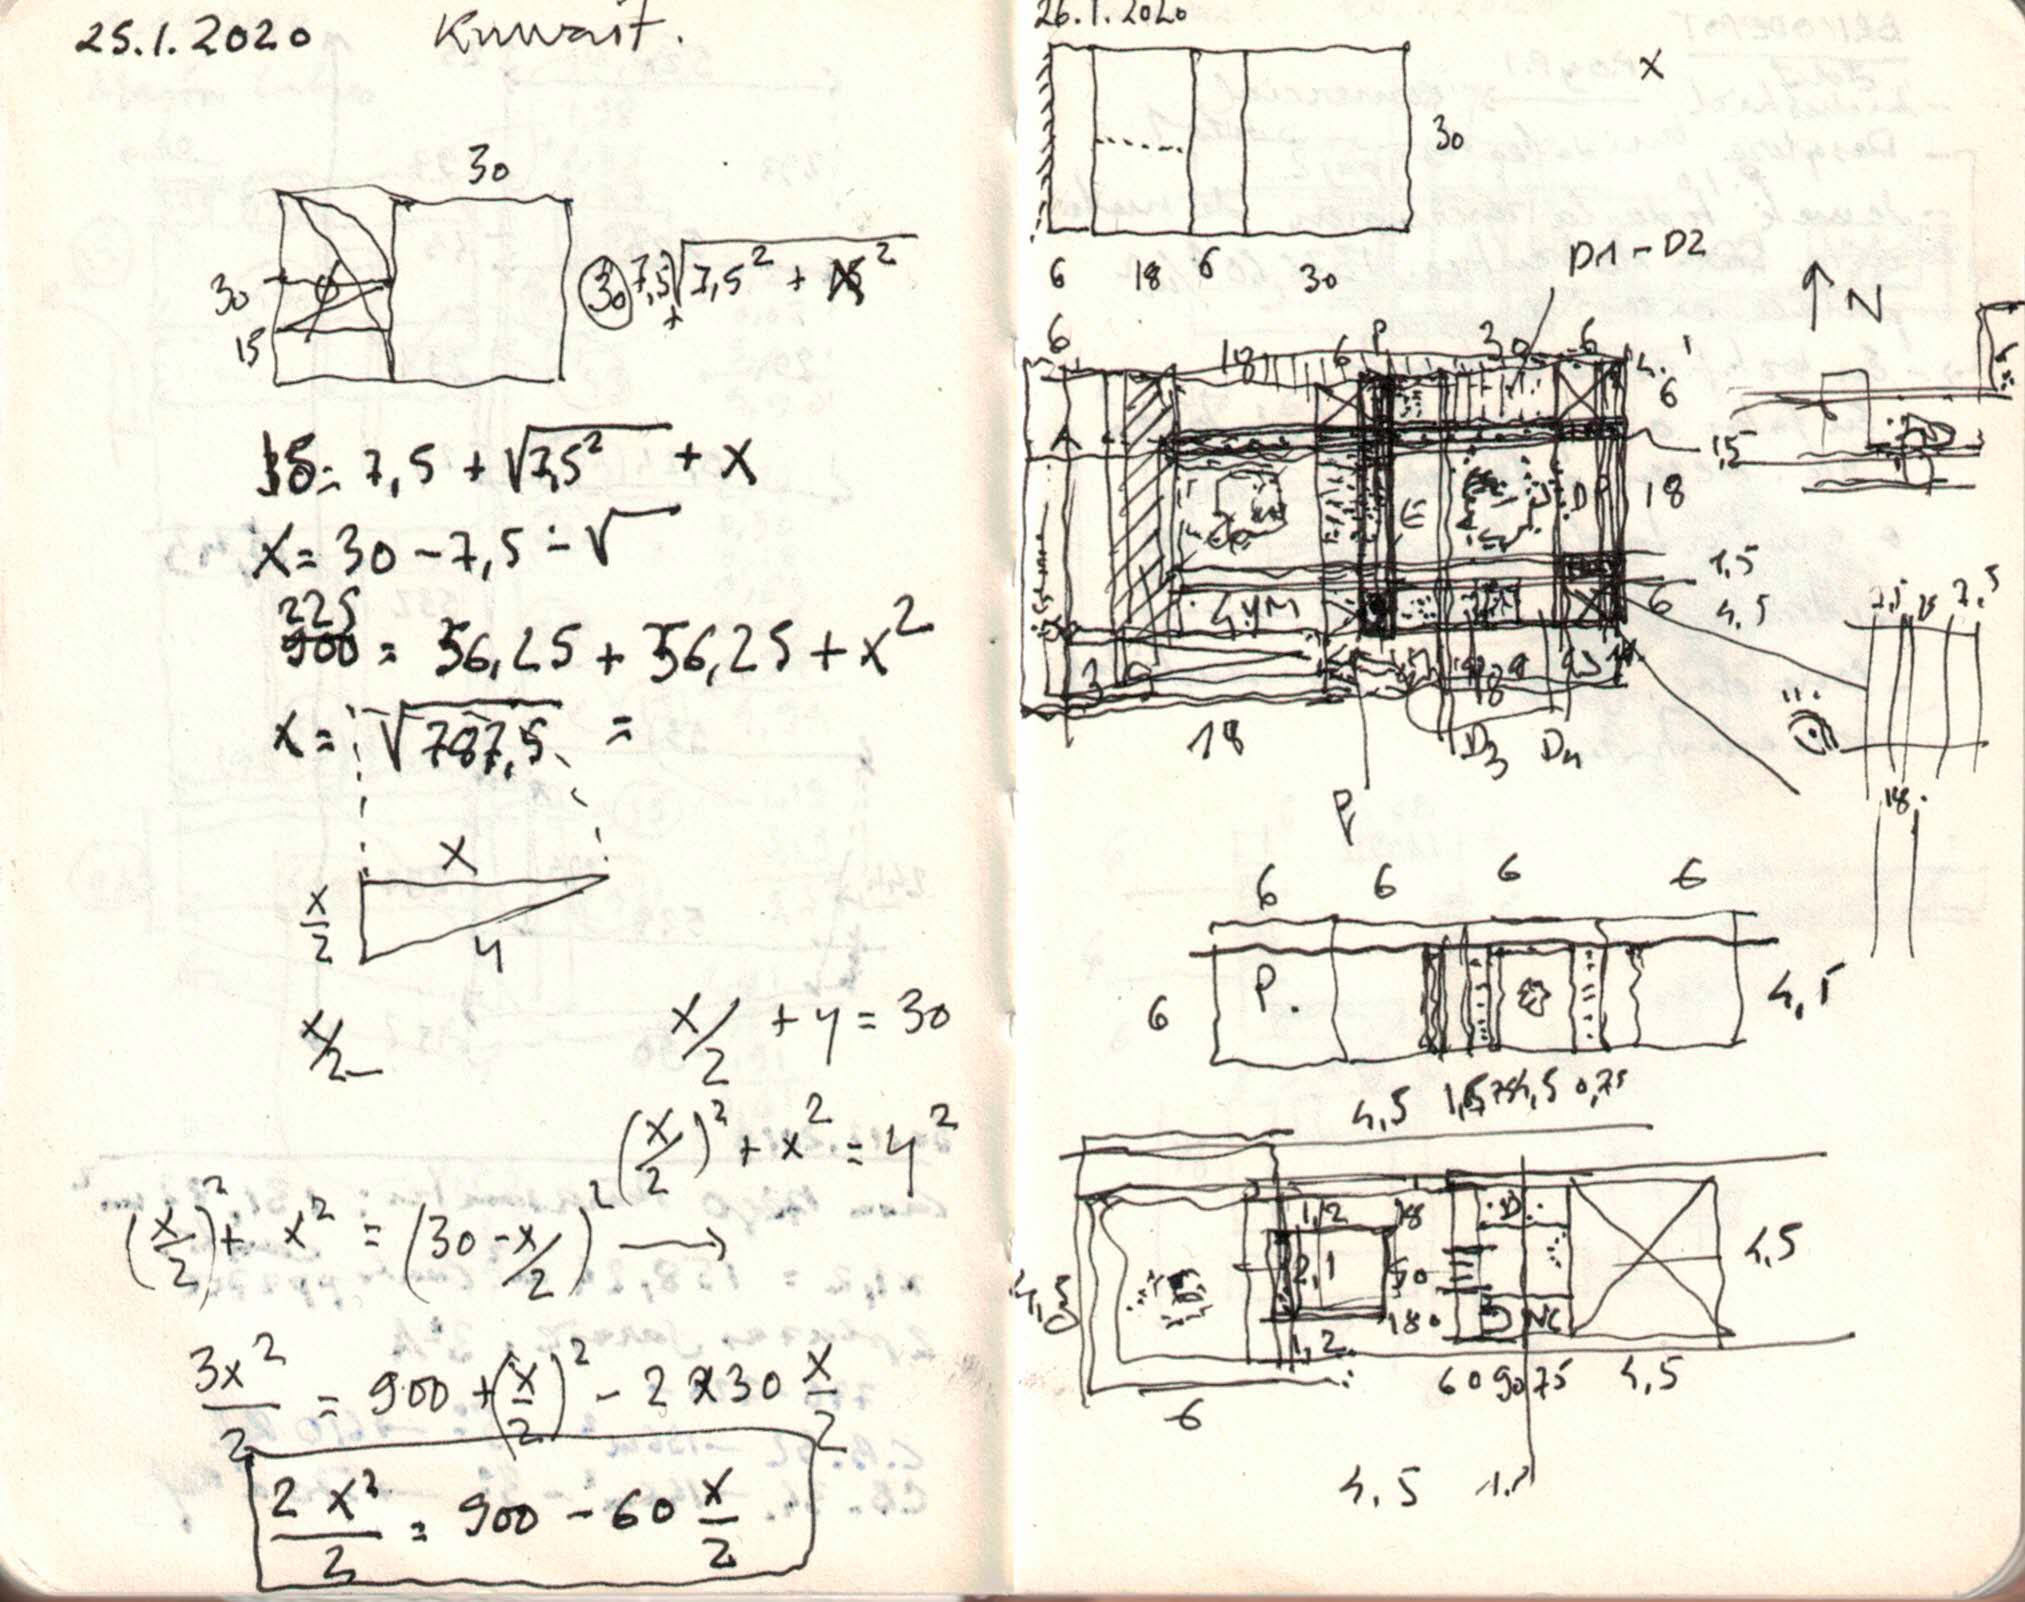 25.1.2020 Kuwait.
30
30
15
30 7,5 + √7,5² + ²
= 7,5 + √7,5² + x
x = 30 - 7,5 - √
225
900 = 56,25 + 56,25 + x²
x = √787,5 =
x
x/2
y
x/2
x/2 + y = 30
(x/2)² + x² = y²
(x/2)² + x² = (30 - x/2)² →
3x²/2 = 900 + (x/2)² - 2 x 30 x/2
2x²/2 = 900 - 60 x/2
26.1.2020
x
30
6 18 6 30
D1 - D2
N
6 18 6 P 30 6
6
1,5
A
E
D
18
1,5
6 4,5
GYM
3
18
D3 D4
P
7,5 7,5
18.
6 6 6 6
6 P. 4,5
4,5 1,5 4,5 0,75
1,2 18
D
2,1 50
4,5
180
WC
1,2
60 90 75 4,5
6
4,5